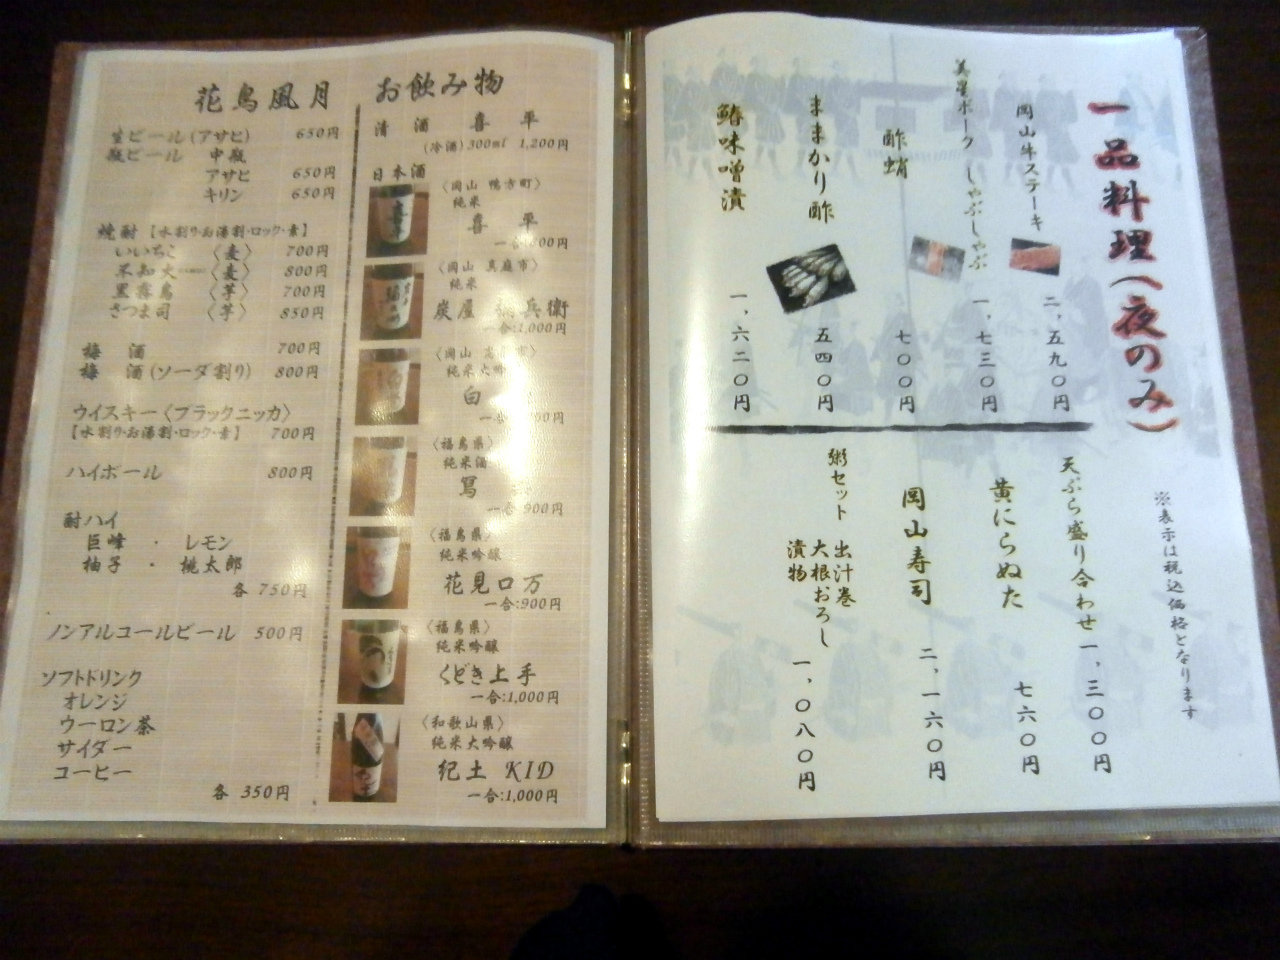 花鳥風月 お飲み物
生ビール(アサヒ) 650円
瓶ビール 中瓶
アサヒ 650円
キリン 650円
焼酎【水割り・お湯割・ロック・素】
いいちこ 〈麦〉 700円
不知火 〈麦〉 800円
黒霧島 〈芋〉 700円
さつま司 〈芋〉 850円
梅酒 700円
梅酒(ソーダ割り) 800円
ウイスキー〈ブラックニッカ〉
【水割り・お湯割・ロック・素】 700円
ハイボール 800円
酎ハイ
巨峰 ・ レモン
柚子 ・ 桃太郎
各 750円
ノンアルコールビール 500円
ソフトドリンク
オレンジ
ウーロン茶
サイダー
コーヒー
各 350円
清酒 喜平
(冷酒)300ml 1,200円
日本酒
〈岡山 鴨方町〉
純米
喜平
〈岡山 真庭市〉
純米
炭屋 兵衛
一合:1,000円
〈岡山
純米大吟
白
〈福島県〉
純米酒
冩
一合 900円
〈福島県〉
純米吟醸
花見ロ万
一合:900円
〈福島県〉
純米吟醸
くどき上手
一合:1,000円
〈和歌山県〉
純米大吟醸
紀土 KID
一合:1,000円
一品料理(夜のみ)
※表示は税込価格となります
岡山牛ステーキ 二、五九〇円
美星ポーク しゃぶしゃぶ 一、七三〇円
酢蛸 七〇〇円
ままかり酢 五四〇円
鰆味噌漬 一、六二〇円
天ぷら盛り合わせ 一、三〇〇円
黄にらぬた 七六〇円
岡山寿司 二、一六〇円
粥セット 出汁巻
大根おろし
漬物 一、〇八〇円